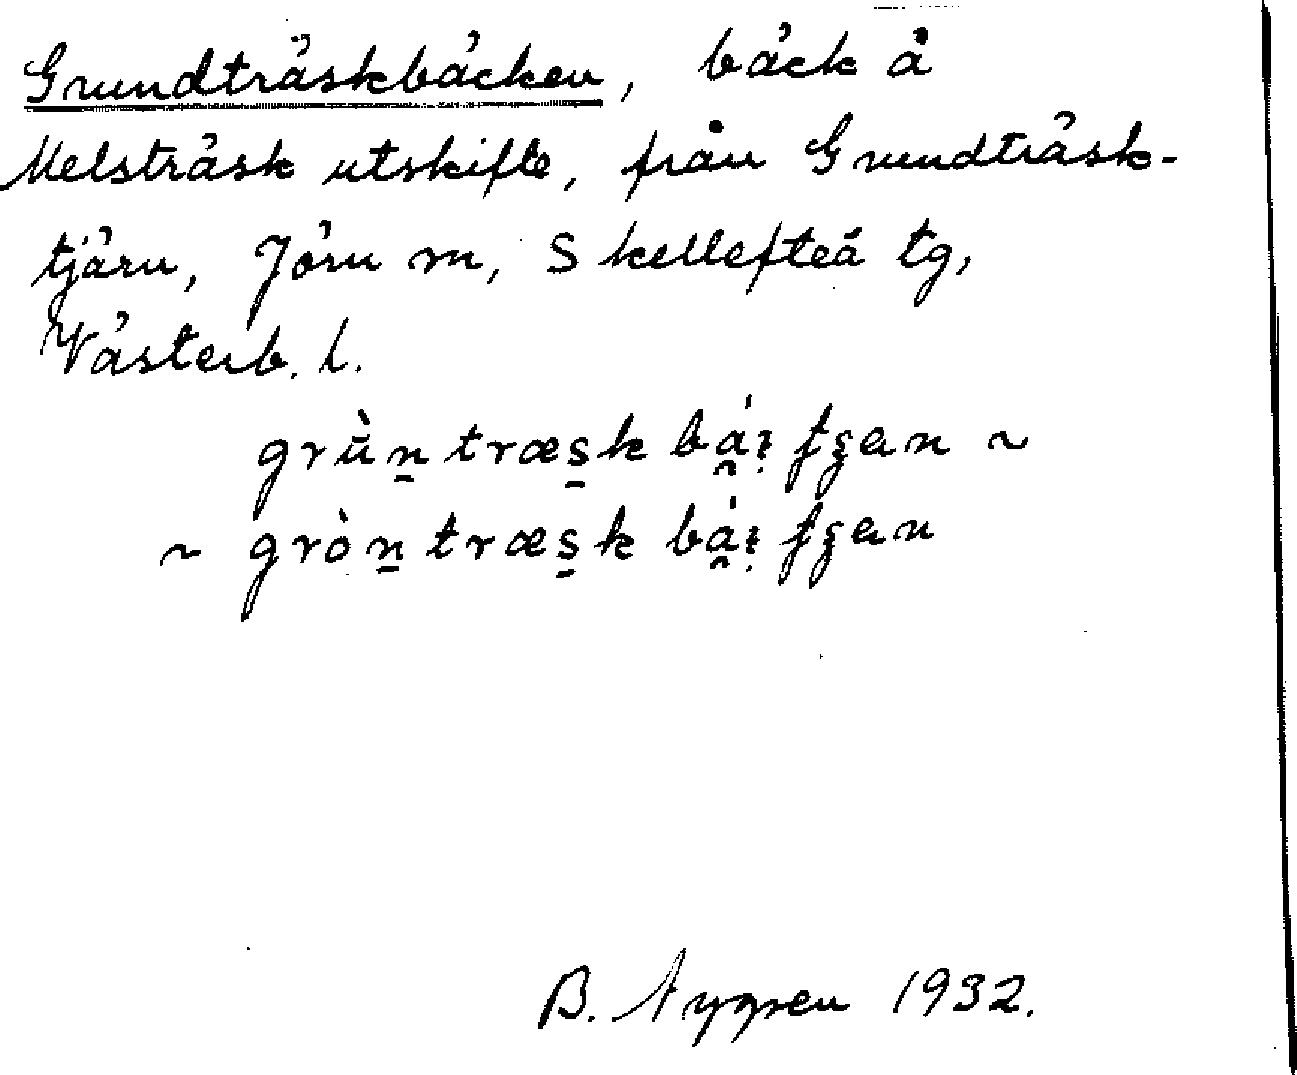 Grundträskbäcken, bäck å
Melsträsk utskifte, från Grundträsk-
tjärn, Jörn sn, Skellefteå tg,
Västerb. l.
grùn̲træs̲k
~ gròn̲træs̲k
B. Nygren 1932.